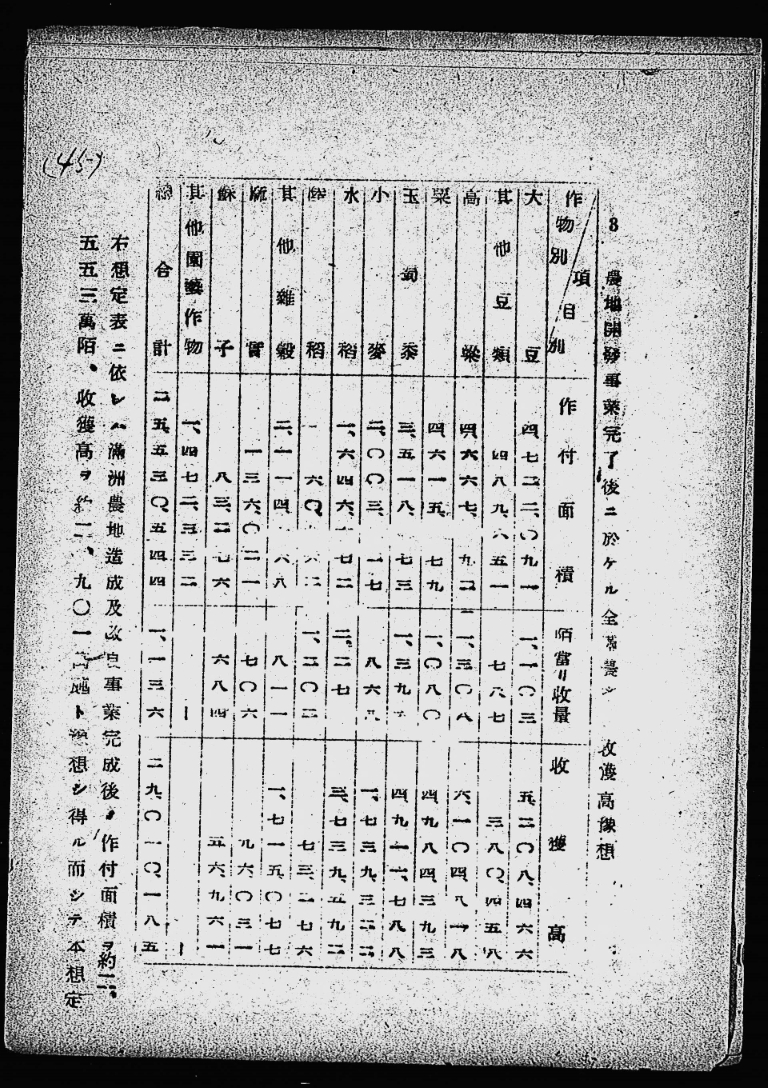 (45)
8 農地開發事業完了後ニ於ケル全 農 收穫高豫想
作物別 項目別 作付面積 陌當リ收量 收穫高
大豆 四、七二二、〇九一 一、一〇三 五、二〇八、四六六
其他豆類 四八九、六五一 七七七 三八〇、四五八
高粱 四、六六七、九二 一、三〇八 六、一〇四、八一八
粟 四、六一五、七九 一、〇八〇 四、九八四、三九三
玉蜀黍 三、五一八、七三 一、三九 四、九一六、七八八
小麥 二、〇〇三、一七 八六 一、七三九、三二二
水稻 一、六四六、七二 二、二七 三、七三九、五九二
陸稻 六〇、六二 一、二〇二 七三、二七六
其他雜穀 二、一一四、六八 八一一 一、七一五、〇七七
蔴實 一三六、〇二一 七〇六 九六、〇三一
蘇子 八三、二七六 六八四 五六、九六一
其他園藝作物 一、四七二、三三二 ー ー
總合計 二五、五三〇、五四四 一、一三六 二九、〇一〇、一八五
右想定表ニ依レハ滿洲農地造成及改良事業完成後ノ作付面積ヲ約二、
五五三萬陌、收穫高ヲ約二、九〇一 ト 想シ得ル而シテ本想定